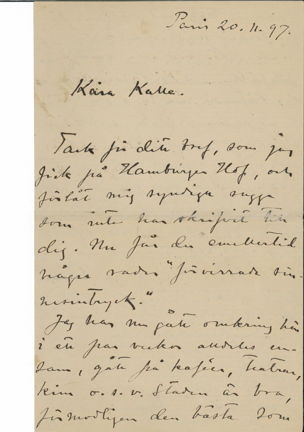 Paris 20. 11. 97.
Kära Kalle.
Tack för ditt bref, som jag
fick på Hamburger Hof, och
förlåt mig syndiga sugga
som inte har skrifvit till
dig. Nu får du emellertid
några rader "förvirrade sin-
nesintryck."
Jag har nu gått omkring här
i ett par veckor alldeles en-
sam, gått på kaféer, teatrar,
o. s. v. Staden är bra,
förmodligen den bästa som